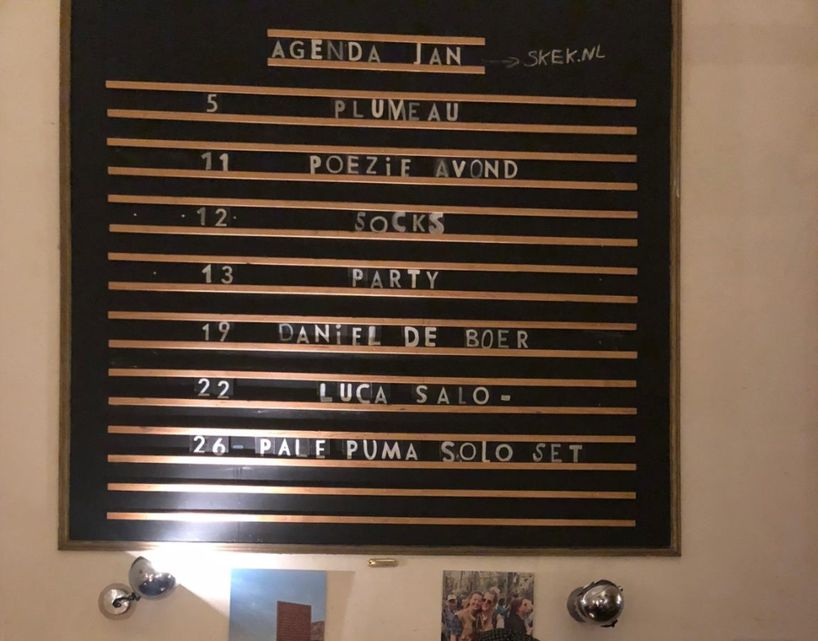 AGENDA JAN → SKEK.NL
5 PLUMEAU
11 POEZiE AVOND
12 SOCKS
13 PARTY
19 DANiEL DE BOER
22 LUCA SALO-
26- PALE PUMA SOLO SET